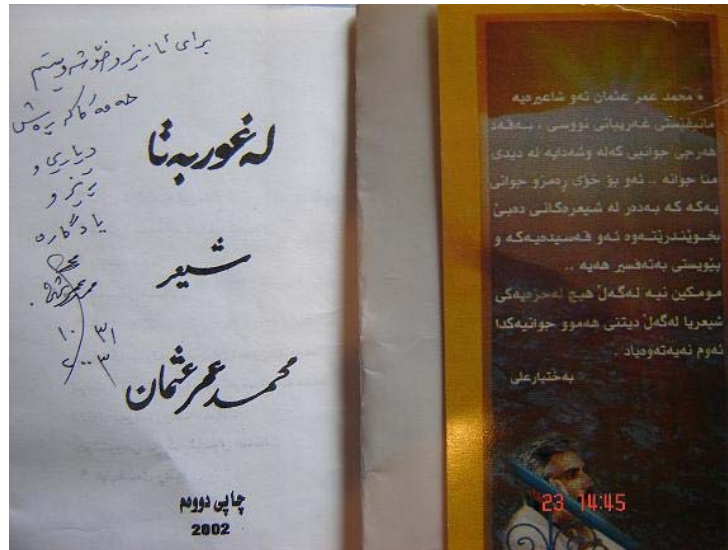 برای ئازیز و خۆشەویستم
حەمە کاکە ڕەش
دیاری و
ڕێز و
یادگارە
٣١
١٠
٢٠٠٣
لە غوربەتا
شیعر
محمد عمر عثمان
چاپی دووەم
2002
• محمد عمر عثمان ئەو شاعیرەیە
مانیفێستی غەریبانی نووسی ، بـەقـەد
هەرچی جوانیی گەلە وشەدایە لە دیدی
منا جوانە .. ئەو بۆ خۆی ڕەمزو جوانی
یەکە کە بەدەر لە شیعرەکانی دەبێ
بخـوێندرێتـەوە ئـەو قـەسیدەیـەکە و
پێویستی بەتەفسیر هەیە ..
مـومـکین نیـە لـەگـەڵ هیچ لـەحزەیـەکی
شیعریا لەگەڵ دیتنی هەموو جوانیەکدا
ئەوم نەیەتەوەیاد .
بەختیارعلی
23 14:45